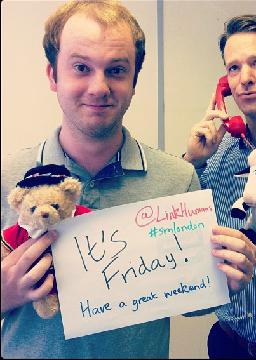 @LinkHumans
#smlondon
It's
Friday!
Have a great weekend!